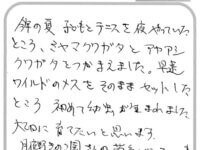 年の夏 子どもとテニスを夜やっていた
ところ、ミヤマクワガタとアカアシ
クワガタをつかまえました。早速
ワイルドのメスをそのままセットした
ところ 初めて幼虫が生まれました
大切に育てたいと思います。
月夜野きのこ園さんの